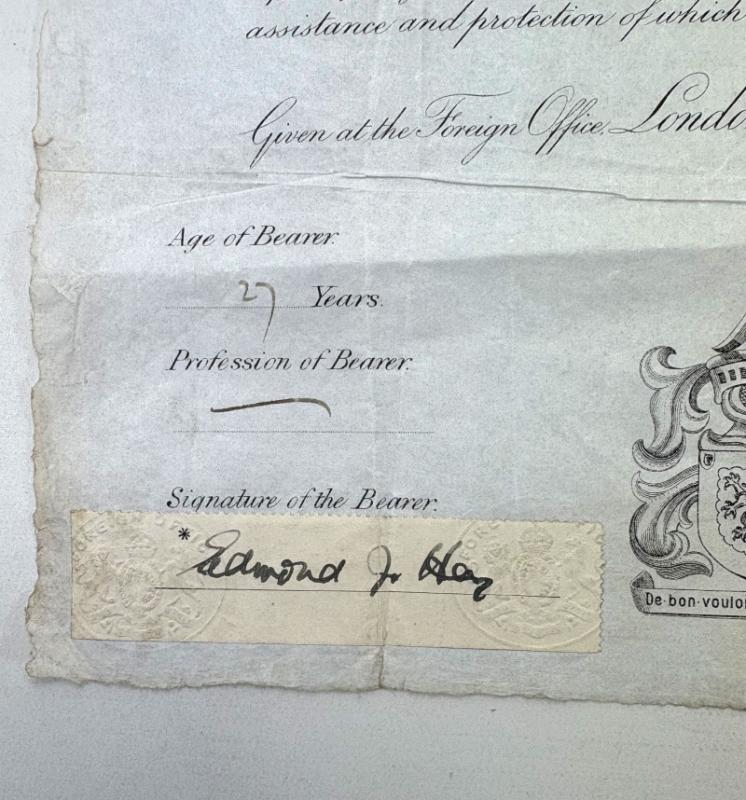 assistance and protection of which
Given at the Foreign Office, Londo
Age of Bearer.
27 Years.
Profession of Bearer.
Signature of the Bearer.
* Edmond J. Hay
De·bon·vouloi